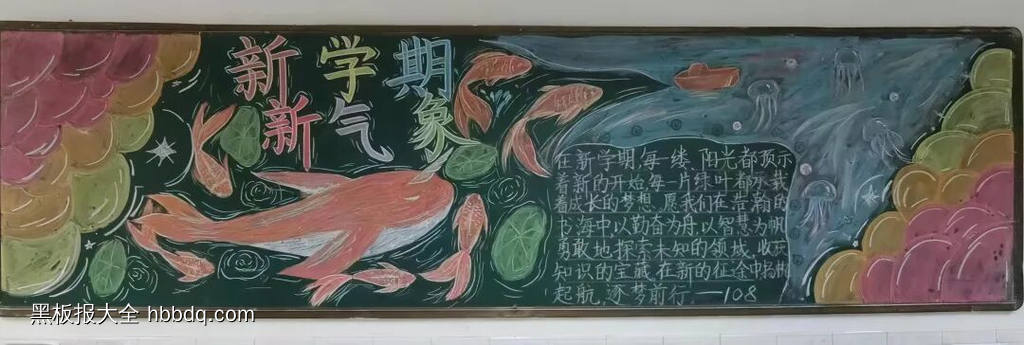 新学期
新气象
在新学期,每一缕阳光都预示
着新的开始每一片绿叶都承载
着成长的梦想,愿我们在浩瀚的
书海中以勤奋为舟以智慧为帆
勇敢地探索未知的领域,收获
知识的宝藏,在新的征途中扬帆
起航,逐梦前行.—108
黑板报大全 hbbdq.com